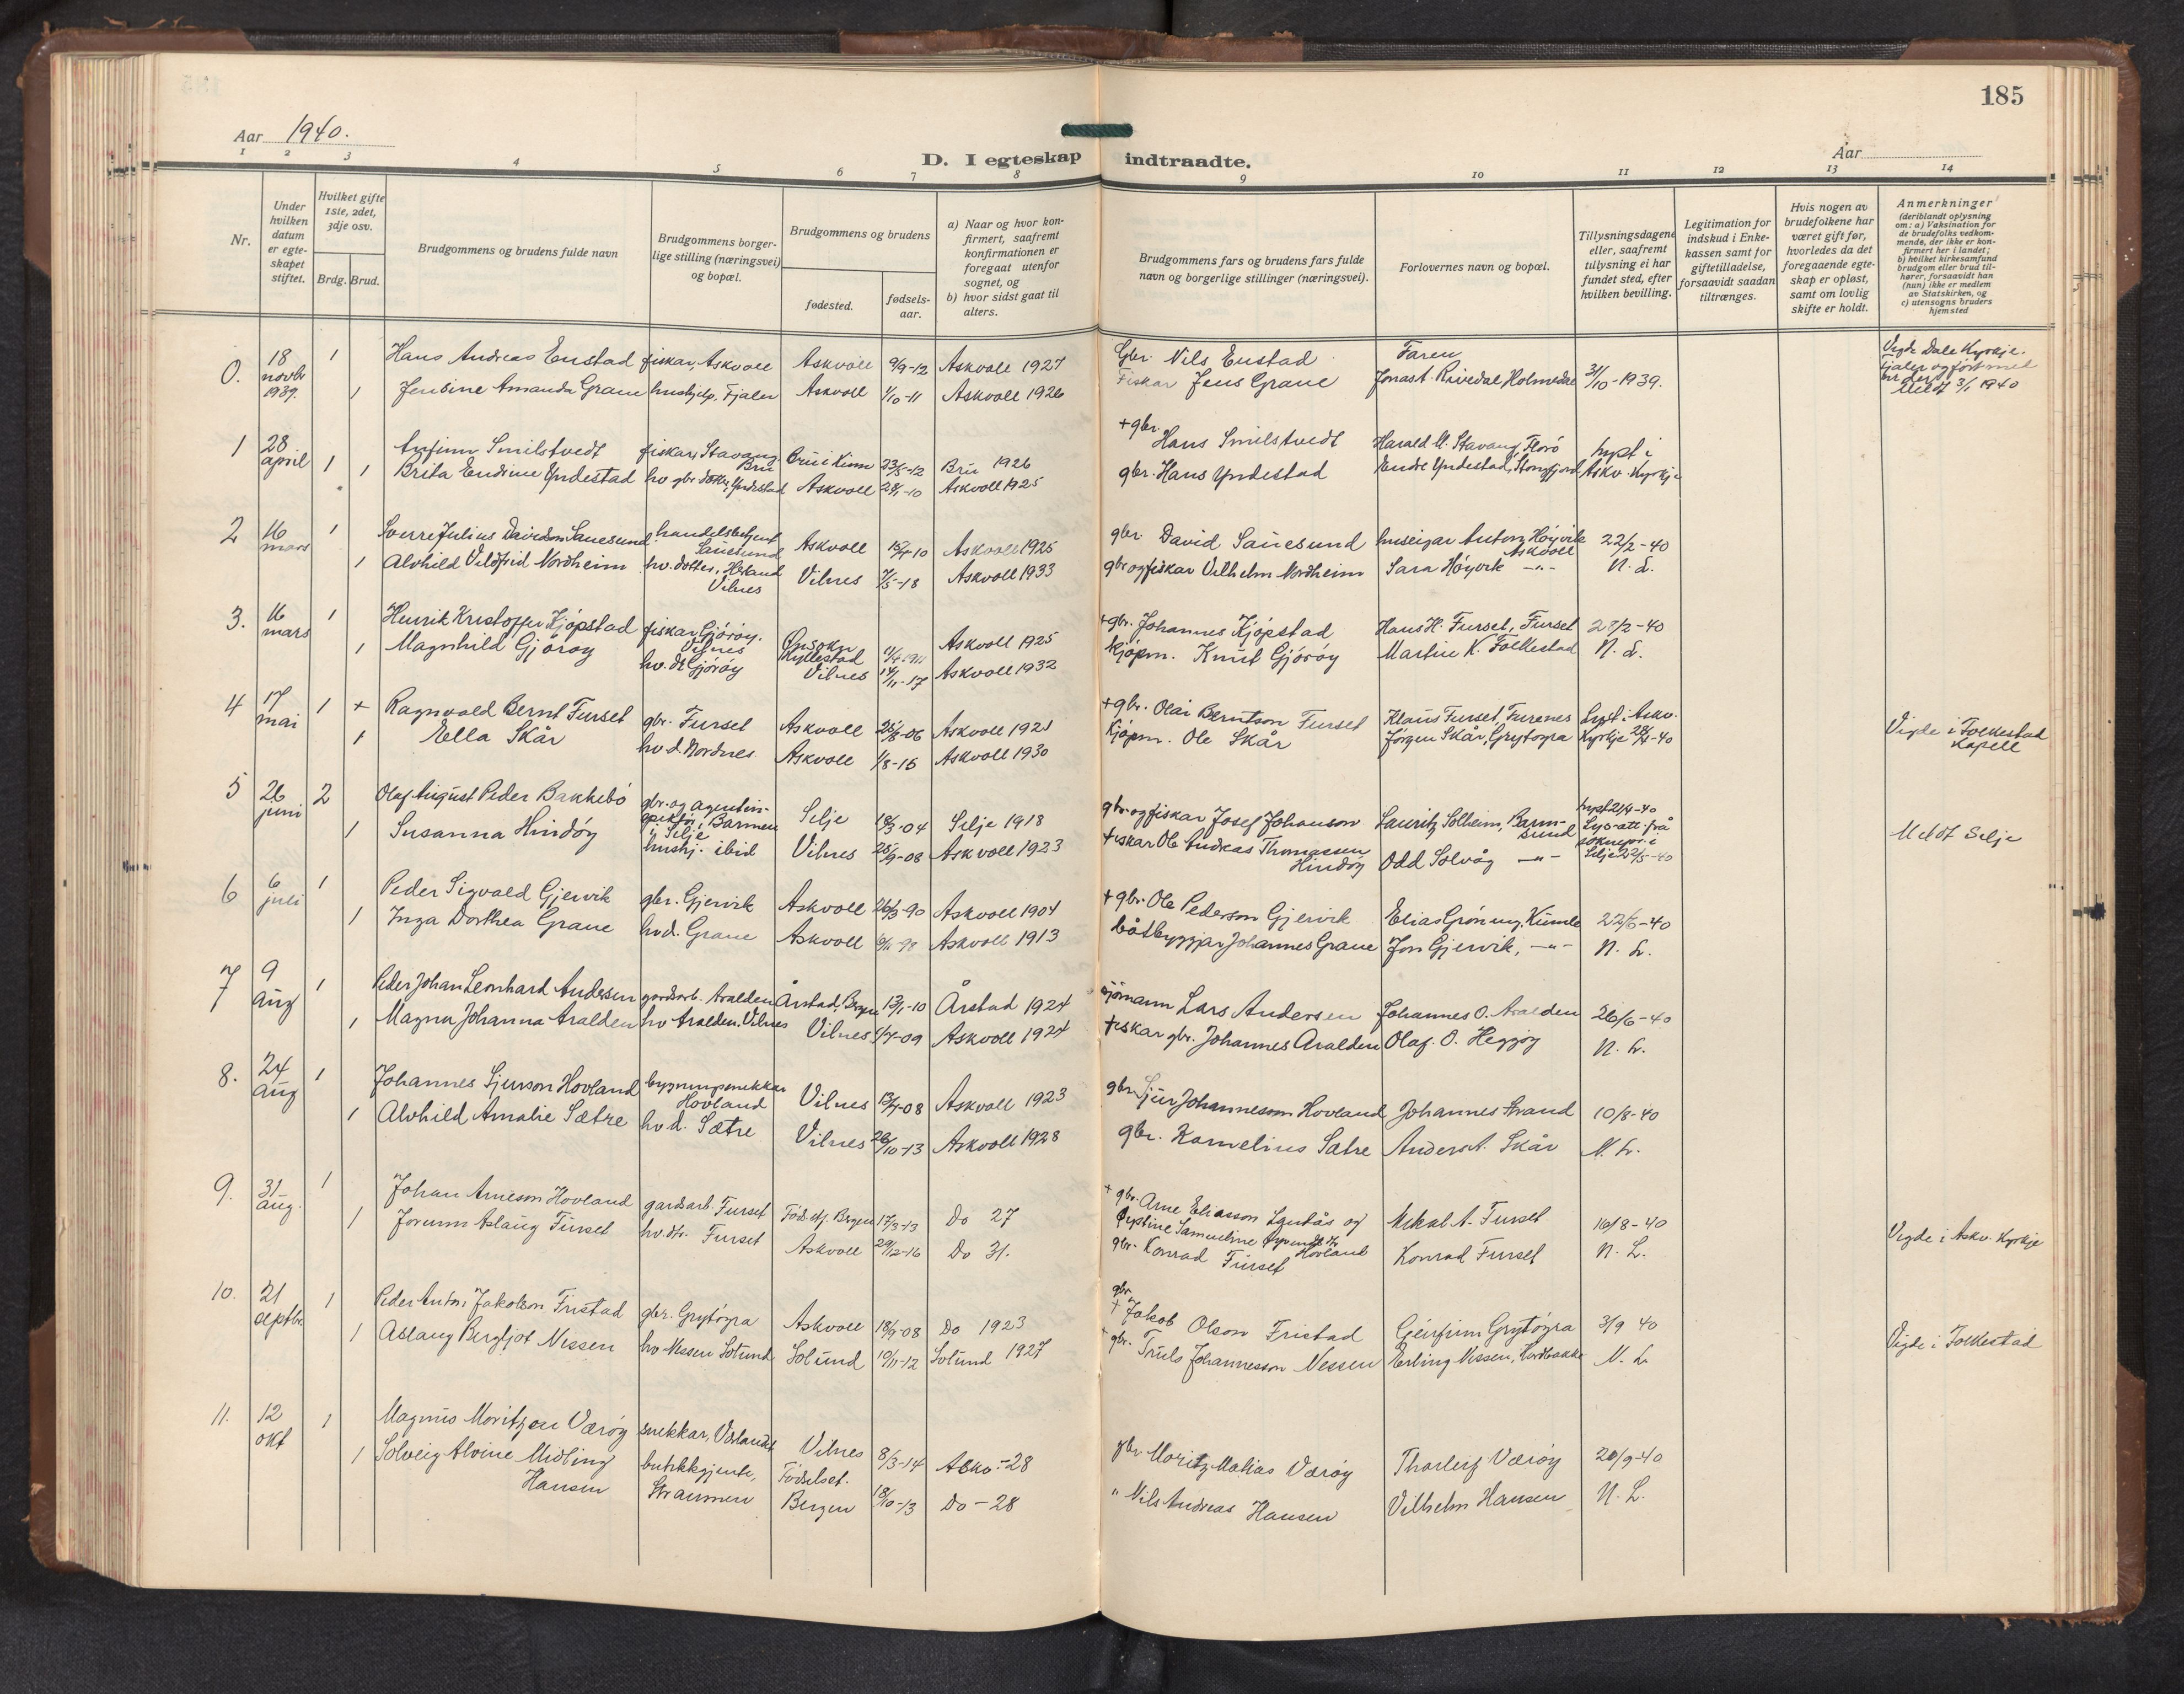 185
Aar 1940.
D. I egteskap indtraadte.
Aar
1 2 3 4 5 6 7 8 9 10 11 12 13 14
Nr.
Under hvilken datum er egteskapet stiftet.
Hvilket gifte 1ste, 2det, 3dje osv.
Brdg. Brud.
Brudgommens og brudens fulde navn
Brudgommens borgerlige stilling (næringsvei) og bopæl.
Brudgommens og brudens
fødested.
fødselsaar.
a) Naar og hvor konfirmert, saafremt konfirmationen er foregaat utenfor sognet, og
b) hvor sidst gaat til alters.
Brudgommens fars og brudens fars fulde navn og borgerlige stillinger (næringsvei).
Forlovernes navn og bopæl.
Tillysningsdagene eller, saafremt tillysning ei har fundet sted, efter hvilken bevilling.
Legitimation for indskud i Enkekassen samt for giftetilladelse, forsaavidt saadan tiltrænges.
Hvis nogen av brudefolkene har været gift før, hvorledes da det foregaaende egteskap er opløst, samt om lovlig skifte er holdt.
Anmerkninger
(deriblandt oplysning om: a) Vaksination for de brudefolks vedkommende, der ikke er konfirmert her i landet;
b) hvilket kirkesamfund brudgom eller brud tilhører, forsaavidt han (hun) ikke er medlem av Statskirken, og
c) utensogns bruders hjemsted
0. 18 novbr 1939. 1 Hans Andreas Enstad fiskar, Askvoll Askvoll 9/9-12 Askvoll 1927 Gbr. Nils Enstad Faren 31/10-1939. Vigde Dale Kyrkje. Fjaler og ført med
1 Jensine Amanda Grane hushjelp, Fjaler Askvoll 1/10-11 Askvoll 1926 Fiskar Jens Grane Jonas t. Rivedal Holmedal Meldt 3/1 1940
1 28 april 1 Anfinn Smilstvedt fiskar, Stavang Bru Bru i Kinn 23/5-12 Bru 1926 + gbr. Hans Smilstvedt Harald M. Stavang, Florö lyst i
1 Brita Endrine Yndestad hv gbr dotter, Yndestad Askvoll 28/1-10 Askvoll 1925 gbr. Hans Yndestad Endre Yndestad, Stongfjord Askv. Kyrkje
2 16 mars 1 Sverre Julius Davidson Sauesund handelsbetjent Sauesund Askvoll 15/4-10 Askvoll 1925 gbr. David Sauesund huseigar Anton Höyvik Askvoll 22/2-40
1 Alvhild Vildfrid Nordheim hv. dotter, Herland Vilnes Vilnes 7/5-18 Askvoll 1933 gbr og fiskar Vilhelm Nordheim Sara Höyvik -"- N. L.
3. 16 mars 1 Henrik Kristoffer Kjöpstad fiskar Gjöröy. Vilnes Hyllestad Askvoll 1925 + gbr. Johannes Kjöpstad Hans H. Furset, Furset 28/2-40
1 Magnhild Gjöröy hv. dt Gjöröy Vilnes 14/11-17 Askvoll 1932 kjöpm. Knut Gjöröy Martin K. Folkestad N. L.
4 17 mai 1 + Ragnvald Bernt Furset gbr. Furset Askvoll 25/8-06 Askvoll 1921 + gbr. Olai Berntson Furset Klaus Furset, Furenes Lyst i Askv. Vigde i Folkestad Kapell
1 Ella Skår hv d. Nordnes Askvoll 1/8-15 Askvoll 1930 Kjöpm. Ole Skår Jörgen Skår, Grytöyra Kyrkje 28/4-40
5 26 juni 2 Olaf August Peder Bakkebö gbr. og agentinspektör, Barmen i Selje Selje 18/3-04 Selje 1918 gbr. og fiskar Josef Johanson Lauritz Solheim, Barmsund lyst 21/4-40 Lys-att. frå Meldt Selje
1 Susanna Hindöy hushj. ibid Vilnes 25/9-08 Askvoll 1923 fiskar Ole Andreas Thomassen Hindöy Odd Solvåg -"- sokneprest i Selje 22/5-40
6 6 juli 1 Peder Sigvald Gjervik gbr. Gjervik Askvoll 26/3-90 Askvoll 1904 + gbr. Ole Pederson Gjervik Elias Gröning, Kumle 22/6-40
1 Inga Dorthea Grane hv d. Grane Askvoll Askvoll 1913 båtbyggjar Johannes Grane Jon Gjervik, -"- N. L.
7 9 aug 1 Peder Johan Leonhard Andersen gardsarb. Aralden Årstad, Bergen 13/1-10 Årstad 1924 sjömann Lars Andersen Johannes O. Aralden 26/6-40
1 Magna Johanna Aralden hv Aralden. Vilnes Vilnes 5/7-09 Askvoll 1924 fiskar gbr. Johannes Aralden Olaf. O. Heggöy N. L.
8. 24 aug 1 Johannes Sjurson Hovland bygningsnekkar Hovland Vilnes 13/4-08 Askvoll 1923 gbr. Sjur Johanneson Hovland Johannes Strand 10/8-40
1 Alvhild Amalie Sætre hv d. Sætre Vilnes 26/10-13 Askvoll 1928 gbr. Kornelius Sætre Anders A. Skår N. L.
9. 31 aug. 1 Johan Arneson Hovland gardsarb. Furset Föd.st. Bergen 17/3-13 Do 27 + gbr. Arne Eliasson Hovland Mikal A. Furset 16/8-40 Vigde i Askv. Kyrkje
1 Jorunn Aslaug Furset hv. dtr. Furset Askvoll 29/12-16 Do 31. gbr. Konrad Furset Konrad Furset N. L.
10. 21 septbr 1 Peder Anton Jakobson Fristad gbr. Grytöyra Askvoll 18/9-08 Do 1923 gbr + Jakob Olson Fristad Geirfinn Grytöyra 3/9 40 Vigde i Folkestad
1 Aslaug Bergljot Nessen hv Nessen Solund Solund 10/11-12 Solund 1927 gbr. Truls Johannesson Nessen Erling Nessen, Hardbakke N. L.
11. 12 okt 1 Magnus Moritzen Væröy snekkar, Værlandet Vilnes 8/3-14 Askv.-28 gbr. Moritz Matias Væröy Tharleiz Væröy 20/9-40
1 Solveig Alvine Midling Hansen butikkgjente, Straumen Födselsst. Bergen 18/10-13 Do-28 " Nils Andreas Hansen Vilhelm Hansen N. L.